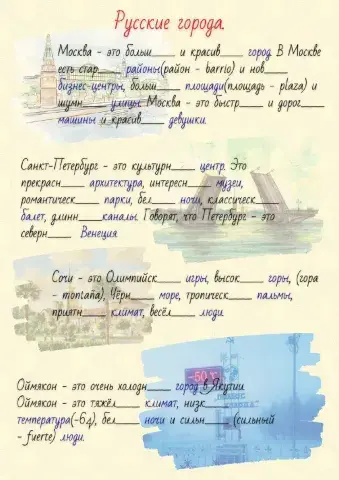 Русские города.
Москва - это больш____ и красив____ город. В Москве
есть стар____ районы(район - barrio) и нов____
бизнес-центры, больш____ площади(площадь - plaza) и
шумн____ улицы. Москва - это быстр____ и дорог____
машины и красив____ девушки.
Санкт-Петербург - это культурн____ центр. Это
прекрасн____ архитектура, интересн____ музеи,
романтическ____ парки, бел____ ночи, классическ____
балет, длинн____каналы. Говорят, что Петербург - это
северн____ Венеция.
Сочи - это Олимпийск____ игры, высок____ горы, (гора
- montaña), Чёрн____ море, тропическ____ пальмы,
приятн____ климат, весёл____ люди.
-60 °C
Оймякон - это очень холодн____ город в Якутии.
Оймякон - это тяжёл____ климат, низк____
температура(-64), бел____ ночи и сильн____ (сильный
- fuerte) люди.